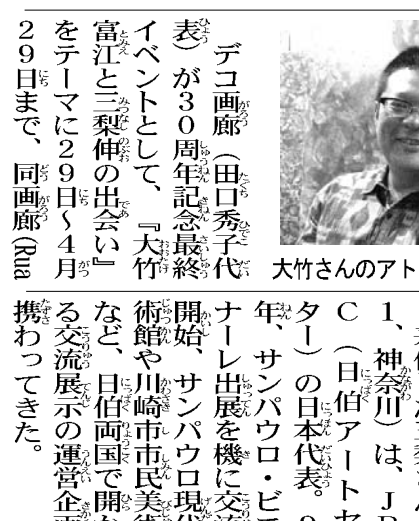 大竹さんのアト
デコ画廊(田口秀子代
表)が30周年記念最終
イベントとして、『大竹
富江と三梨伸の出会い』
をテーマに29日〜4月
29日まで、同画廊(Rua
1、神奈川)は、J
C(日伯アートセ
ター)の日本代表。
年、サンパウロ・ビ
ナーレ出展を機に交流
開始、サンパウロ現代
術館や川崎市市民美術
など、日伯両国で開か
る交流展示の運営企画
携わってきた。